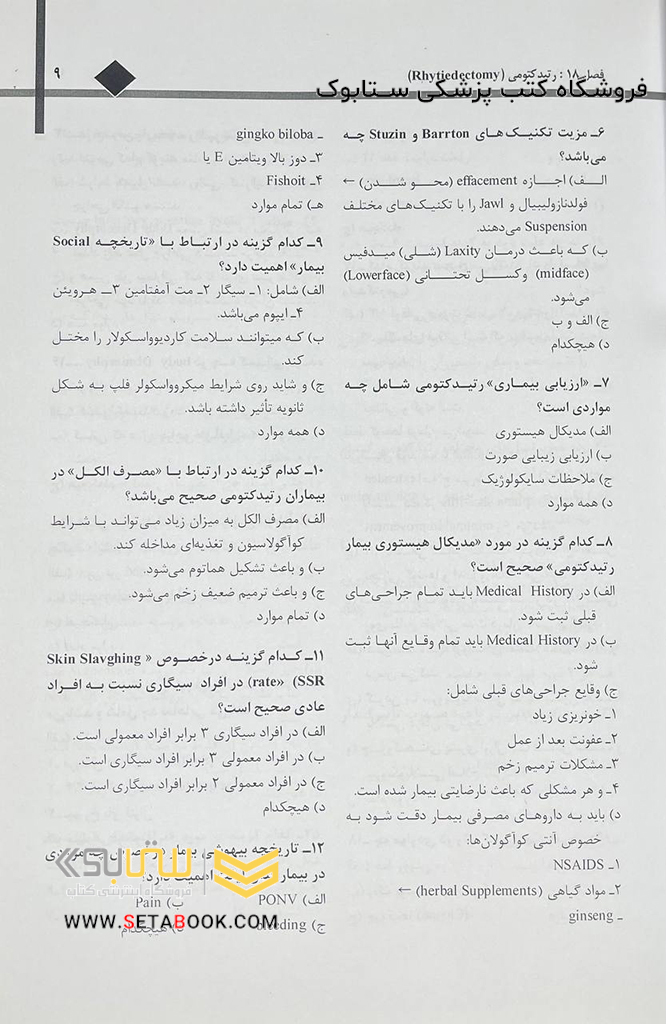 فصل ۱۸: رتیدکتومی (Rhytiedectomy)
۹
فروشگاه کتب پزشکی ستابوک
۶ـ مزیت تکنیک‌های Barrton و Stuzin چه
می‌باشد؟
الف) اجازه effacement (محو شدن) ←
فولدنازولیبیال و Jawl را با تکنیک‌های مختلف
Suspension می‌دهند.
ب) که باعث درمان Laxity (شلی) میدفیس
(midface) وکسل تحتانی (Lowerface)
می‌شود.
ج) الف و ب
د) هیچکدام
۷ـ «ارزیابی بیماری» رتیدکتومی شامل چه
مواردی است؟
الف) مدیکال هیستوری
ب) ارزیابی زیبایی صورت
ج) ملاحظات سایکولوژیک
د) همه موارد
۸ـ کدام گزینه در مورد «مدیکال هیستوری بیمار
رتیدکتومی» صحیح است؟
الف) در Medical History باید تمام جراحی‌های
قبلی ثبت شود.
ب) در Medical History باید تمام وقایع آنها ثبت
شود.
ج) وقایع جراحی‌های قبلی شامل:
۱ـ خونریزی زیاد
۲ـ عفونت بعد از عمل
۳ـ مشکلات ترمیم زخم
۴ـ و هر مشکلی که باعث نارضایتی بیمار شده است.
د) باید به داروهای مصرفی بیمار دقت شود به
خصوص آنتی کوآگولان‌ها:
۱ـ NSAIDS
۲ـ مواد گیاهی (herbal Supplements) ←
ـ ginseng
ـ gingko biloba
۳ـ دوز بالا ویتامین E یا
۴ـ Fishoit
هـ) تمام موارد
۹ـ کدام گزینه در ارتباط با «تاریخچه Social
بیمار» اهمیت دارد؟
الف) شامل: ۱ـ سیگار ۲ـ مت آمفتامین ۳ـ هرویئن
۴ـ ایپوم می‌باشد.
ب) که میتواننـد سلامت کاردیوواسکولار را مختل
کند.
ج) و شاید روی شرایط میکروواسکولر فلپ به شکل
ثانویه تأثیر داشته باشد.
د) همه موارد
۱۰ـ کدام گزینه در ارتباط با «مصرف الکل» در
بیماران رتیدکتومی صحیح می‌باشد؟
الف) مصرف الکل به میزان زیاد می‌تواند با شرایط
کوآگولاسیون و تغذیه‌ای مداخله کند.
ب) و باعث تشکیل هماتوم می‌شود.
ج) و باعث ترمیم ضعیف زخم می‌شود.
د) تمام موارد
۱۱ـ کدام گزینه درخصوص « Skin Slavghing
rate» (SSR) در افراد سیگاری نسبت به افراد
عادی صحیح است؟
الف) در افراد سیگاری ۳ برابر افراد معمولی است.
ب) در افراد معمولی ۳ برابر افراد سیگاری است.
ج) در افراد معمولی ۲ برابر افراد سیگاری است.
د) هیچکدام
۱۲ـ تاریخچه بیهوشی بیمار
در بیمار اهمیت دارد؟
الف) PONV ب) Pain
ج) bleeding د) هیچکدام
ستابوک
فروشگاه اینترنتی کتاب
WWW.SETABOOK.COM